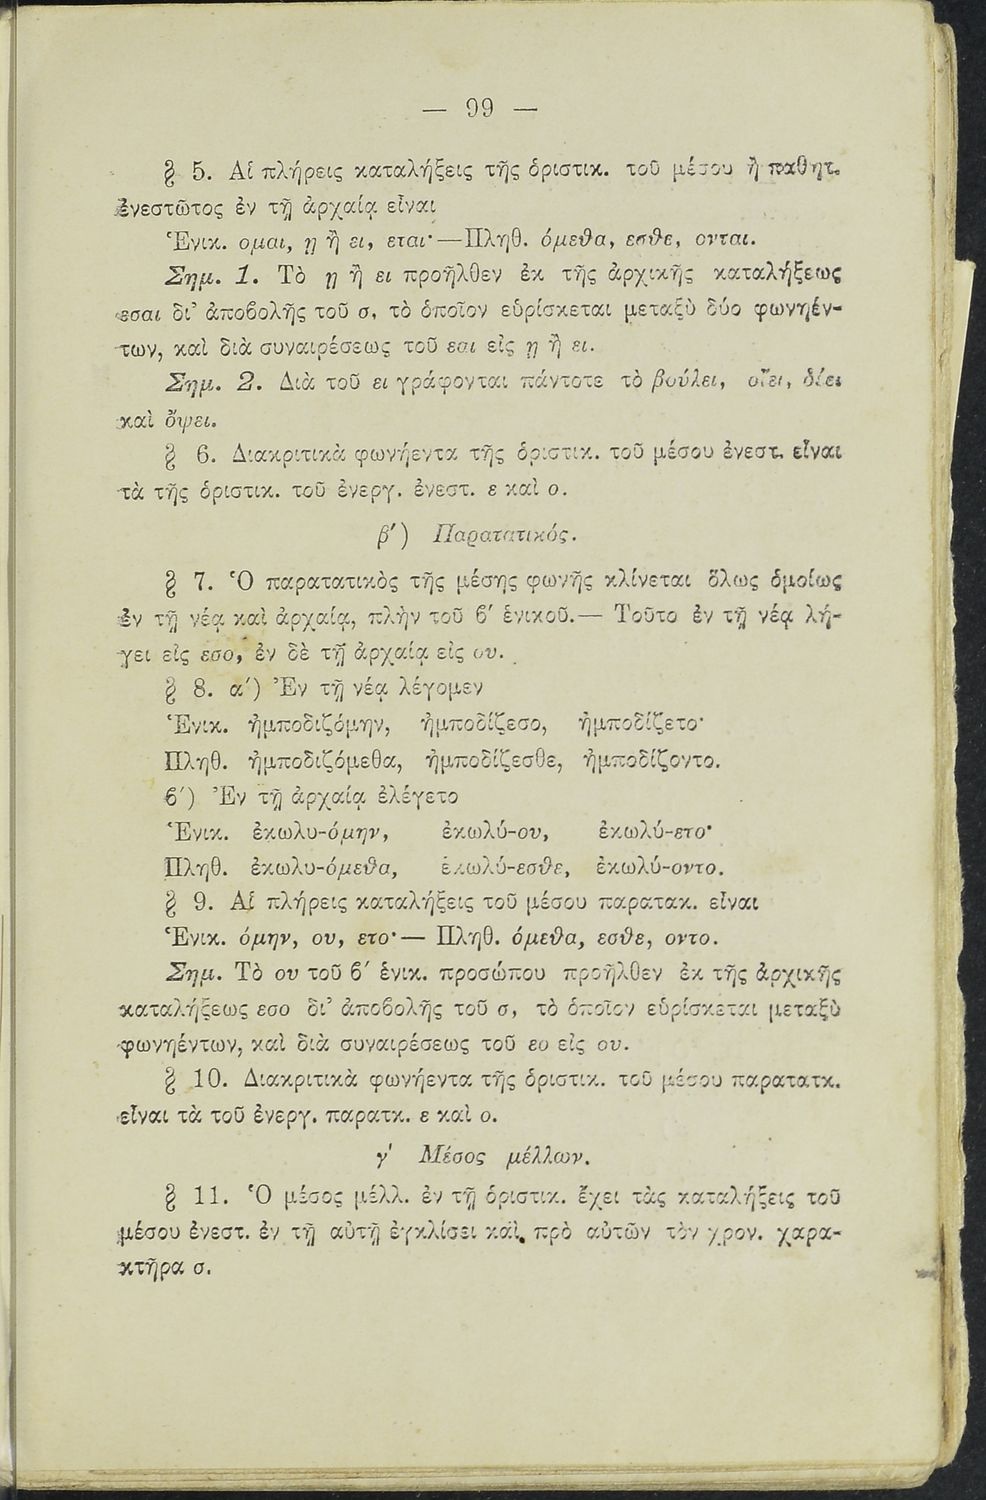 — 99 —
§ 5. Αἱ πλήρεις καταλήξεις τῆς ὁριστικ. τοῦ μέσου ἢ παθητ.
ἐνεστῶτος ἐν τῇ ἀρχαίᾳ εἶναι
Ἑνικ. ομαι, ῃ ἢ ει, εται·—Πληθ. όμεθα, εσθε, ονται.
Σημ. 1. Τὸ ῃ ἢ ει προῆλθεν ἐκ τῆς ἀρχικῆς καταλήξεως
εσαι δι’ ἀποβολῆς τοῦ σ, τὸ ὁποῖον εὑρίσκεται μεταξὺ δύο φωνηέν-
των, καὶ διὰ συναιρέσεως τοῦ εαι εἰς ῃ ἢ ει.
Σημ. 2. Διὰ τοῦ ει γράφονται πάντοτε τὸ βούλει, οἴει, δέει
καὶ ὄψει.
§ 6. Διακριτικὰ φωνήεντα τῆς ὁριστικ. τοῦ μέσου ἐνεστ. εἶναι
τὰ τῆς ὁριστικ. τοῦ ἐνεργ. ἐνεστ. ε καὶ ο.
β′) Παρατατικός.
§ 7. Ὁ παρατατικὸς τῆς μέσης φωνῆς κλίνεται ὅλως ὁμοίως
ἐν τῇ νέᾳ καὶ ἀρχαίᾳ, πλὴν τοῦ β′ ἑνικοῦ.— Τοῦτο ἐν τῇ νέᾳ λή-
γει εἰς εσο, ἐν δὲ τῇ ἀρχαίᾳ εἰς ου.
§ 8. α′) Ἐν τῇ νέᾳ λέγομεν
Ἑνικ. ἠμποδιζόμην, ἠμποδίζεσο, ἠμποδίζετο·
Πληθ. ἠμποδιζόμεθα, ἠμποδίζεσθε, ἠμποδίζοντο.
β′) Ἐν τῇ ἀρχαίᾳ ἐλέγετο
Ἑνικ. ἐκωλυ-όμην, ἐκωλύ-ου, ἐκωλύ-ετο·
Πληθ. ἐκωλυ-όμεθα, ἐκωλύ-εσθε, ἐκωλύ-οντο.
§ 9. Αἱ πλήρεις καταλήξεις τοῦ μέσου παρατακ. εἶναι
Ἑνικ. όμην, ου, ετο·— Πληθ. όμεθα, εσθε, οντο.
Σημ. Τὸ ου τοῦ β′ ἑνικ. προσώπου προῆλθεν ἐκ τῆς ἀρχικῆς
καταλήξεως εσο δι’ ἀποβολῆς τοῦ σ, τὸ ὁποῖον εὑρίσκεται μεταξὺ
φωνηέντων, καὶ διὰ συναιρέσεως τοῦ εο εἰς ου.
§ 10. Διακριτικὰ φωνήεντα τῆς ὁριστικ. τοῦ μέσου παρατατκ.
εἶναι τὰ τοῦ ἐνεργ. παρατκ. ε καὶ ο.
γ′ Μέσος μέλλων.
§ 11. Ὁ μέσος μέλλ. ἐν τῇ ὁριστικ. ἔχει τὰς καταλήξεις τοῦ
μέσου ἐνεστ. ἐν τῇ αὐτῇ ἐγκλίσει καὶ, πρὸ αὐτῶν τὸν χρον. χαρα-
κτῆρα σ.